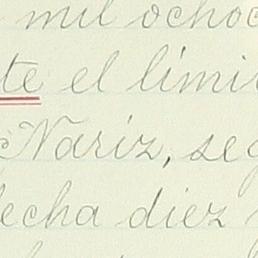 mil ochoc
te el límit
Nariz, seg
fecha diez